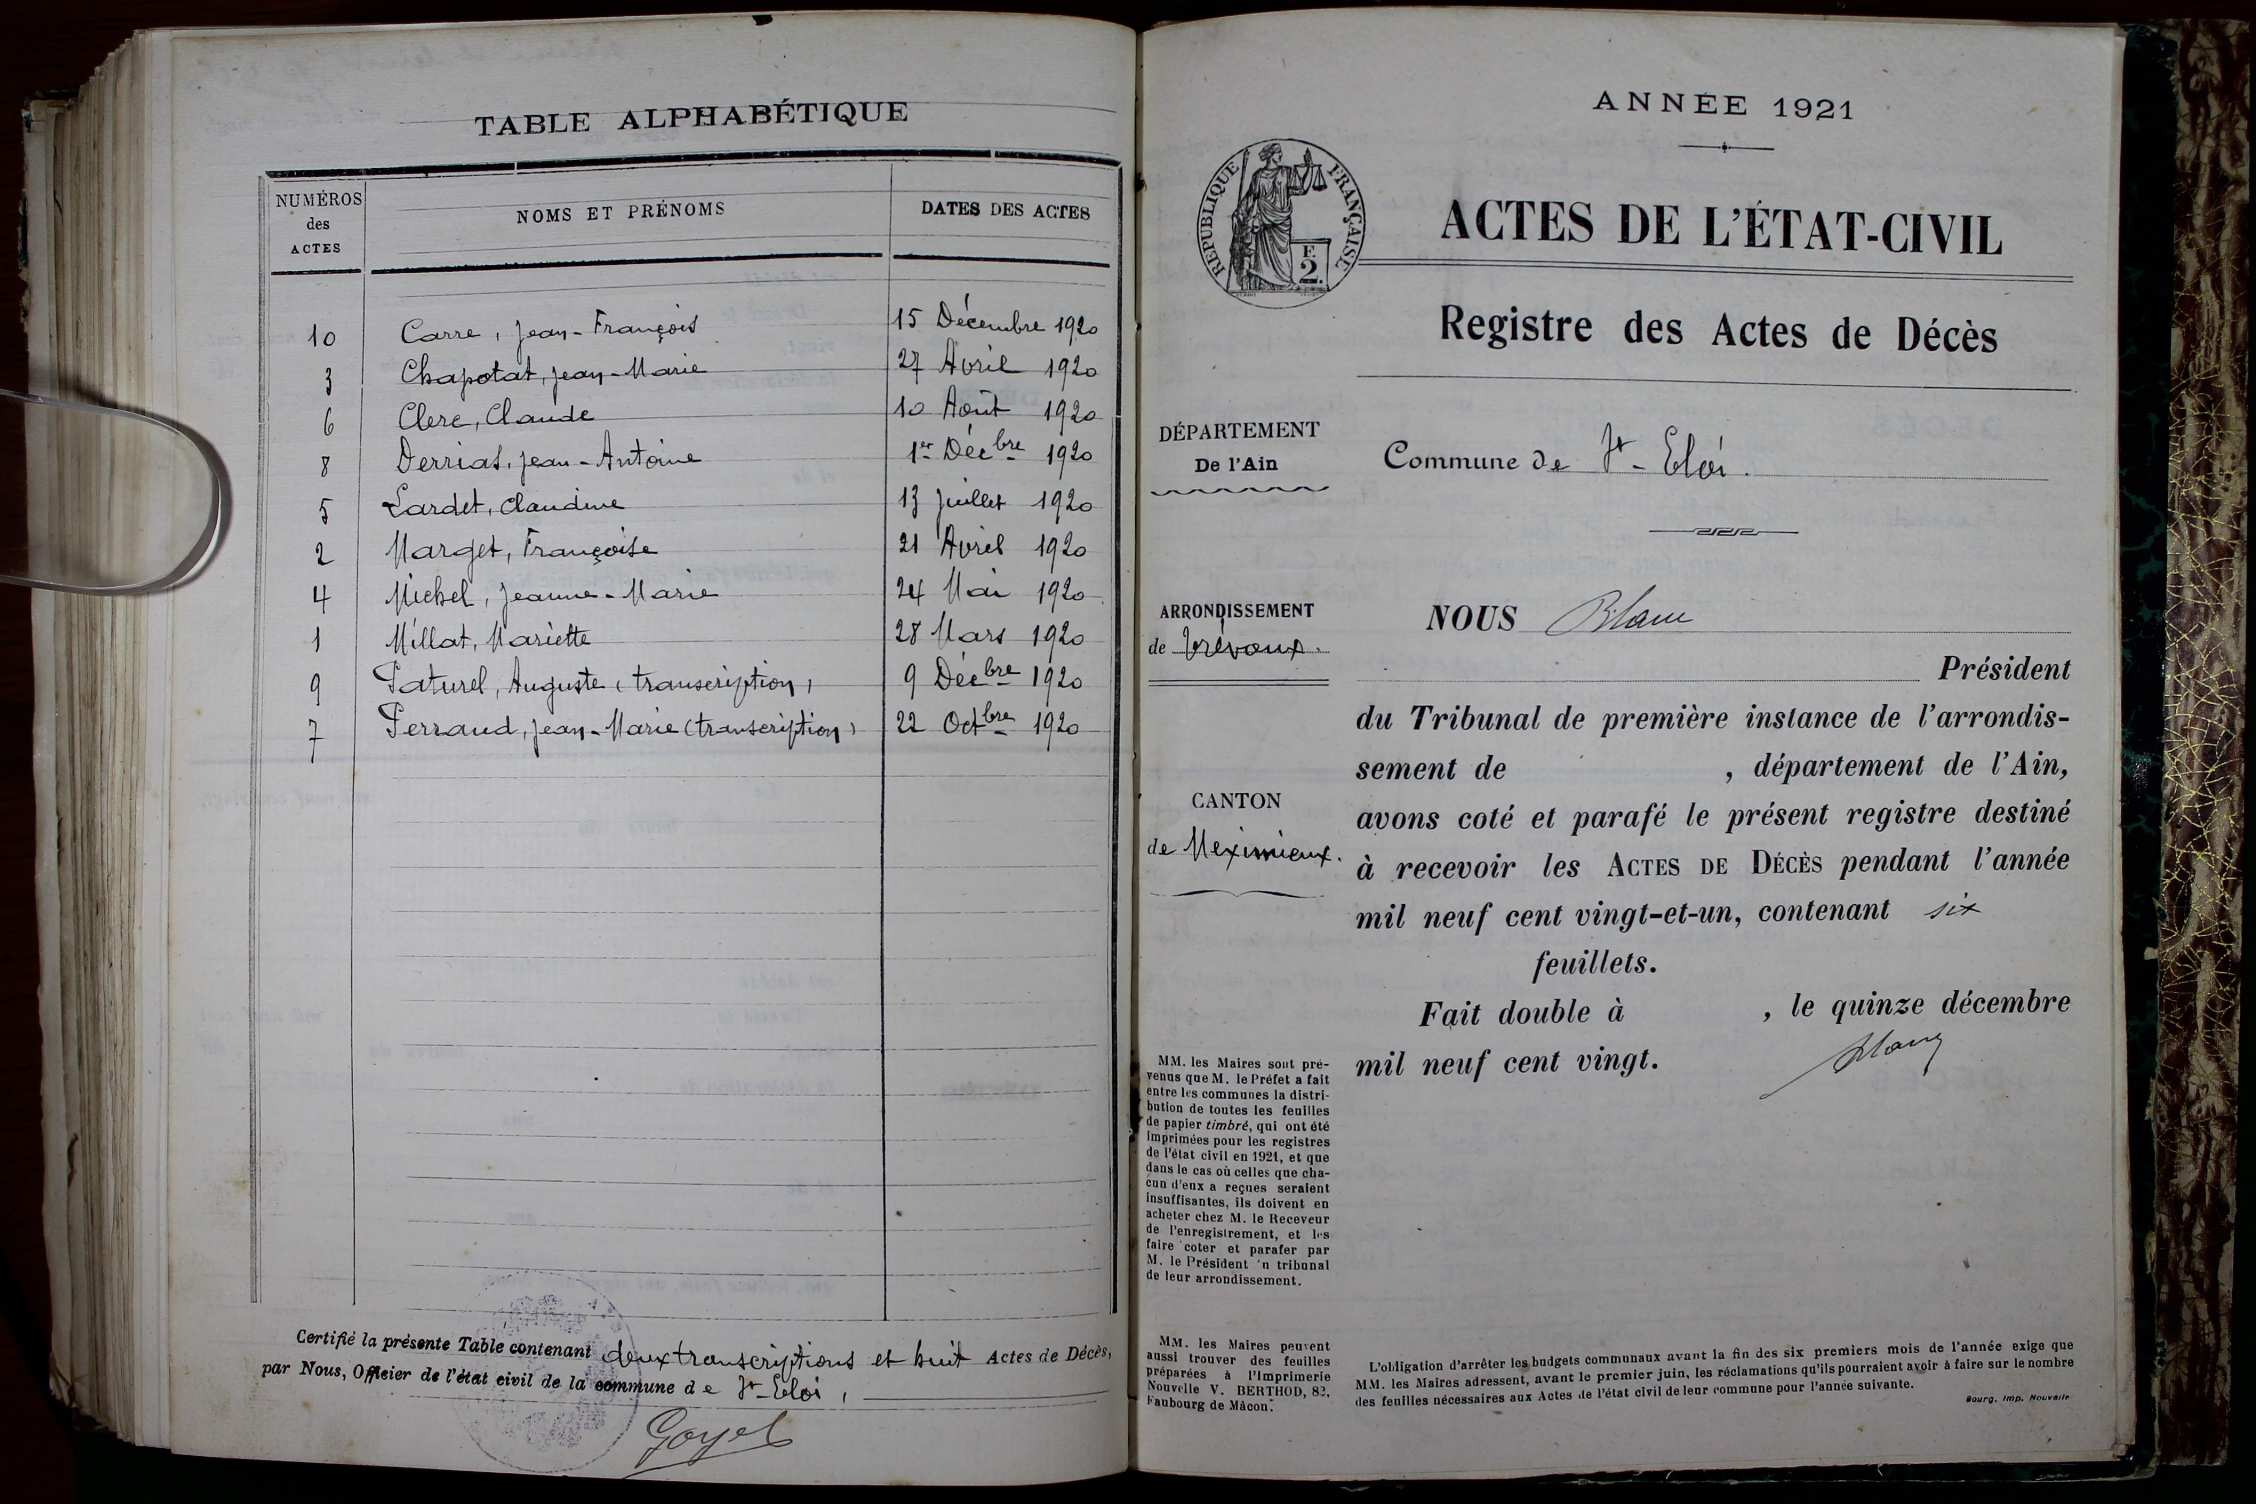 TABLE ALPHABÉTIQUE
NUMÉROS des ACTES
NOMS ET PRÉNOMS
DATES DES ACTES
10 Carre, Jean-François 15 Décembre 1920
3 Chapotat, Jean-Marie 27 Avril 1920
6 Clerc, Claude 10 Août 1920
8 Derrias, Jean-Antoine 1er Décbre 1920
5 Lardet, Claudine 13 Juillet 1920
2 Marget, Françoise 21 Avril 1920
4 Michel, Jeanne-Marie 24 Mai 1920
1 Millat, Mariette 28 Mars 1920
9 Paturel, Auguste (transcription) 9 Décbre 1920
7 Perraud, Jean-Marie (transcription) 22 Octbre 1920
Certifié la présente Table contenant deux transcriptions et huit Actes de Décès,
par Nous, Officier de l'état civil de la commune de St-Eloi,
Goyet
ANNÉE 1921
RÉPUBLIQUE FRANÇAISE
F.
2.
ACTES DE L'ÉTAT-CIVIL
Registre des Actes de Décès
DÉPARTEMENT
De l'Ain
Commune de St-Eloi.
ARRONDISSEMENT
de Trévoux.
CANTON
de Meximieux.
NOUS Blanc
Président
du Tribunal de première instance de l'arrondis-
sement de , département de l'Ain,
avons coté et parafé le présent registre destiné
à recevoir les ACTES DE DÉCÈS pendant l'année
mil neuf cent vingt-et-un, contenant six
feuillets.
Fait double à , le quinze décembre
mil neuf cent vingt.
Blanc
MM. les Maires sont pré-
venus que M. le Préfet a fait
entre les communes la distri-
bution de toutes les feuilles
de papier timbré, qui ont été
imprimées pour les registres
de l'état civil en 1921, et que
dans le cas où celles que cha-
cun d'eux a reçues seraient
insuffisantes, ils doivent en
acheter chez M. le Receveur
de l'enregistrement, et les
faire coter et parafer par
M. le Président 'u tribunal
de leur arrondissement.
MM. les Maires peuvent
aussi trouver des feuilles
préparées à l'Imprimerie
Nouvelle V. BERTHOD, 82,
Faubourg de Mâcon.
L'obligation d'arrêter les budgets communaux avant la fin des six premiers mois de l'année exige que
MM. les Maires adressent, avant le premier juin, les réclamations qu'ils pourraient avoir à faire sur le nombre
des feuilles nécessaires aux Actes de l'état civil de leur commune pour l'année suivante.
Bourg, Imp. Nouvelle